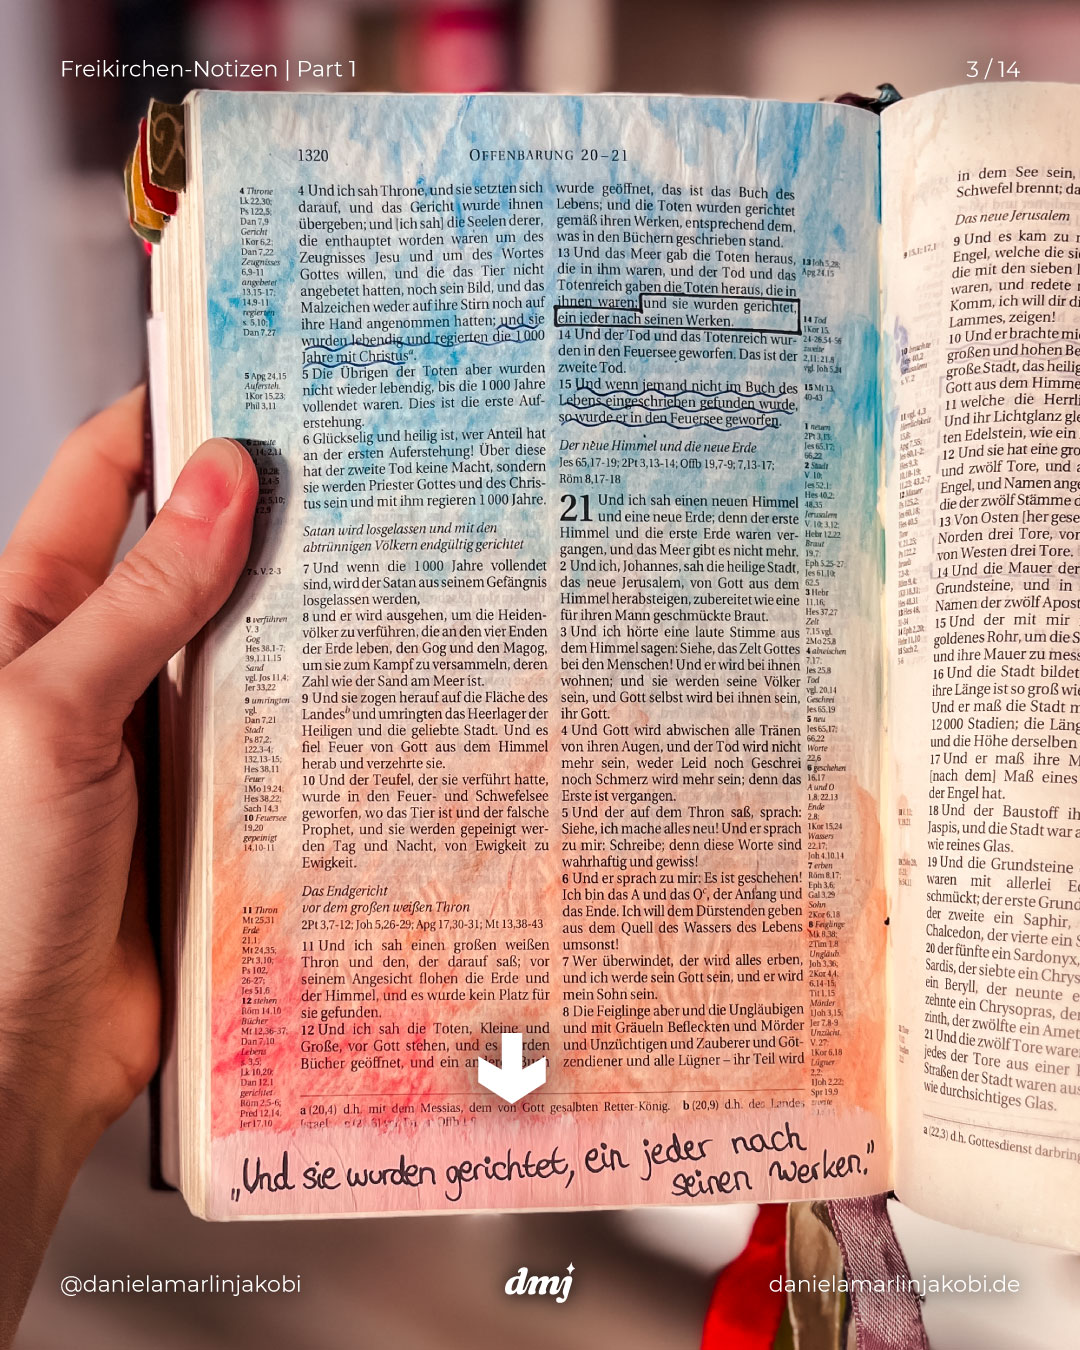 Freikirchen-Notizen | Part 1
3 / 14
1320
OFFENBARUNG 20–21
4 Throne
Lk 22,30;
Ps 122,5;
Dan 7,9
Gericht
1Kor 6,2;
Dan 7,22
Zeugnisses
6,9-11
angebetet
13,15-17;
14,9-11
regierten
s. 5,10;
Dan 7,27
5 Apg 24,15
Aufersteh.
1Kor 15,23;
Phil 3,11
7 s. V. 2-3
8 verführen
V. 3
Gog
Hes 38,1-7;
39,1.11.15
Sand
vgl. Jos 11,4;
Jer 33,22
9 umringten
vgl.
Dan 7,21
Stadt
Ps 87,2;
122,3-4;
132,13-15;
Hes 38,11
Feuer
1Mo 19,24;
Hes 38,22;
Sach 14,3
10 Feuersee
19,20
gepeinigt
14,10-11
11 Thron
Mt 25,31
Erde
21,1;
Mt 24,35;
2Pt 3,10;
Ps 102,
26-27;
Jes 51,6
12 stehen
Röm 14,10
Bücher
Mt 12,36-37;
Dan 7,10
Lebens
s. 3,5;
Lk 10,20;
Dan 12,1
gerichtet
Röm 2,5-6;
Pred 12,14;
Jer 17,10
4 Und ich sah Throne, und sie setzten sich
darauf, und das Gericht wurde ihnen
übergeben; und [ich sah] die Seelen derer,
die enthauptet worden waren um des
Zeugnisses Jesu und um des Wortes
Gottes willen, und die das Tier nicht
angebetet hatten, noch sein Bild, und das
Malzeichen weder auf ihre Stirn noch auf
ihre Hand angenommen hatten; und sie
wurden lebendig und regierten die 1000
Jahre mit Christusᵃ.
5 Die Übrigen der Toten aber wurden
nicht wieder lebendig, bis die 1000 Jahre
vollendet waren. Dies ist die erste Auf-
erstehung.
6 Glückselig und heilig ist, wer Anteil hat
an der ersten Auferstehung! Über diese
hat der zweite Tod keine Macht, sondern
sie werden Priester Gottes und des Chris-
tus sein und mit ihm regieren 1000 Jahre.
Satan wird losgelassen und mit den
abtrünnigen Völkern endgültig gerichtet
7 Und wenn die 1000 Jahre vollendet
sind, wird der Satan aus seinem Gefängnis
losgelassen werden,
8 und er wird ausgehen, um die Heiden-
völker zu verführen, die an den vier Enden
der Erde leben, den Gog und den Magog,
um sie zum Kampf zu versammeln, deren
Zahl wie der Sand am Meer ist.
9 Und sie zogen herauf auf die Fläche des
Landesᵇ und umringten das Heerlager der
Heiligen und die geliebte Stadt. Und es
fiel Feuer von Gott aus dem Himmel
herab und verzehrte sie.
10 Und der Teufel, der sie verführt hatte,
wurde in den Feuer- und Schwefelsee
geworfen, wo das Tier ist und der falsche
Prophet, und sie werden gepeinigt wer-
den Tag und Nacht, von Ewigkeit zu
Ewigkeit.
Das Endgericht
vor dem großen weißen Thron
2Pt 3,7-12; Joh 5,26-29; Apg 17,30-31; Mt 13,38-43
11 Und ich sah einen großen weißen
Thron und den, der darauf saß; vor
seinem Angesicht flohen die Erde und
der Himmel, und es wurde kein Platz für
sie gefunden.
12 Und ich sah die Toten, Kleine und
Große, vor Gott stehen, und es
Bücher geöffnet, und ein
wurde geöffnet, das ist das Buch des
Lebens; und die Toten wurden gerichtet
gemäß ihren Werken, entsprechend dem,
was in den Büchern geschrieben stand.
13 Und das Meer gab die Toten heraus,
die in ihm waren, und der Tod und das
Totenreich gaben die Toten heraus, die in
ihnen waren; und sie wurden gerichtet,
ein jeder nach seinen Werken.
14 Und der Tod und das Totenreich wur-
den in den Feuersee geworfen. Das ist der
zweite Tod.
15 Und wenn jemand nicht im Buch des
Lebens eingeschrieben gefunden wurde,
so wurde er in den Feuersee geworfen.
Der neue Himmel und die neue Erde
Jes 65,17-19; 2Pt 3,13-14; Offb 19,7-9; 7,13-17;
Röm 8,17-18
21 Und ich sah einen neuen Himmel
und eine neue Erde; denn der erste
Himmel und die erste Erde waren ver-
gangen, und das Meer gibt es nicht mehr.
2 Und ich, Johannes, sah die heilige Stadt,
das neue Jerusalem, von Gott aus dem
Himmel herabsteigen, zubereitet wie eine
für ihren Mann geschmückte Braut.
3 Und ich hörte eine laute Stimme aus
dem Himmel sagen: Siehe, das Zelt Gottes
bei den Menschen! Und er wird bei ihnen
wohnen; und sie werden seine Völker
sein, und Gott selbst wird bei ihnen sein,
ihr Gott.
4 Und Gott wird abwischen alle Tränen
von ihren Augen, und der Tod wird nicht
mehr sein, weder Leid noch Geschrei
noch Schmerz wird mehr sein; denn das
Erste ist vergangen.
5 Und der auf dem Thron saß, sprach:
Siehe, ich mache alles neu! Und er sprach
zu mir: Schreibe; denn diese Worte sind
wahrhaftig und gewiss!
6 Und er sprach zu mir: Es ist geschehen!
Ich bin das A und das Oᶜ, der Anfang und
das Ende. Ich will dem Dürstenden geben
aus dem Quell des Wassers des Lebens
umsonst!
7 Wer überwindet, der wird alles erben,
und ich werde sein Gott sein, und er wird
mein Sohn sein.
8 Die Feiglinge aber und die Ungläubigen
und mit Gräueln Befleckten und Mörder
und Unzüchtigen und Zauberer und Göt-
zendiener und alle Lügner – ihr Teil wird
13 Joh 5,28;
Apg 24,15
14 Tod
1Kor 15,
15 Mt 13,
40-43
1 neuen
2Pt 3,13;
Jes 65,17;
66,22
2 Stadt
V. 10;
Jes 52,1;
Hes 40,2;
48,35
Jerusalem
V. 10; 3,12;
Hebr 12,22
Braut
19,7;
Eph 5,25-27;
Jes 61,10;
62,5
3 Hebr
11,16;
Hes 37,27
Zelt
7,15 vgl.
2Mo 25,8
4 abwischen
7,17;
Jes 25,8
Tod
vgl. 20,14
Geschrei
Jes 65,19
5 neu
Jes 65,17;
66,22
Worte
22,6
6 geschehen
16,17
A und O
1,8; 22,13
Ende
2,8;
1Kor 15,24
Wassers
22,17;
Joh 4,10.14
7 erben
Röm 8,17;
Eph 3,6;
Gal 3,29
Sohn
2Kor 6,18
8 Feiglinge
Mk 8,38;
2Tim 1,8
Unglaub
Joh 3,36;
2Kor 4,4;
6,14-15;
Tit 1,15
Mörder
1Joh 3,15;
Jer 7,8-9
Unzücht.
V. 27;
1Kor 6,18
Lügner
2,2;
1Joh 2,22;
Spr 19,9
a (20,4) d.h. mit dem Messias, dem von Gott gesalbten Retter-König. b (20,9) d.h. des Landes
„Und sie wurden gerichtet, ein jeder nach
seinen Werken."
in dem See sein,
Schwefel brennt; da
Das neue Jerusalem
9 Und es kam zu
Engel, welche die
die mit den sieben
waren, und redete
Komm, ich will dir di
Lammes, zeigen!
10 Und er brachte mi
großen und hohen Be
große Stadt, das heilig
Gott aus dem Himme
11 welche die Herrl
Und ihr Lichtglanz gle
ten Edelstein, wie ein
12 Und sie hat eine gro
und zwölf Tore, und
Engel, und Namen ange
die der zwölf Stämme
13 Von Osten [her gese
Norden drei Tore, vo
von Westen drei Tore.
14 Und die Mauer der
Grundsteine, und in
Namen der zwölf Apost
15 Und der mit mir
goldenes Rohr, um die S
und ihre Mauer zu mess
16 Und die Stadt bildet
ihre Länge ist so groß wie
Und er maß die Stadt m
12000 Stadien; die Läng
und die Höhe derselben
17 Und er maß ihre M
[nach dem] Maß eines
der Engel hat.
18 Und der Baustoff ih
Jaspis, und die Stadt war a
wie reines Glas.
19 Und die Grundsteine
waren mit allerlei Ed
schmückt; der erste Grund
der zweite ein Saphir,
Chalcedon, der vierte ein S
20 der fünfte ein Sardonyx,
Sardis, der siebte ein Chrys
ein Beryll, der neunte
zehnte ein Chrysopras, der
zinth, der zwölfte ein Amet
21 Und die zwölf Tore ware
jedes der Tore aus einer
Straßen der Stadt waren aus
wie durchsichtiges Glas.
a (22,3) d.h. Gottesdienst darbring
@danielamarlinjakobi
dmj
danielamarlinjakobi.de